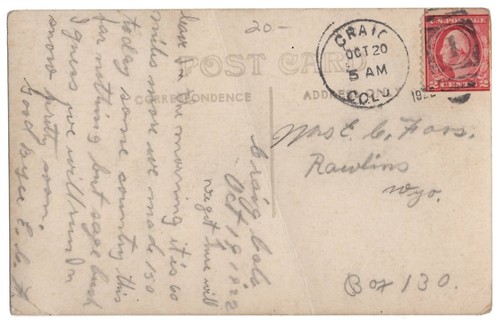 20-
POST CARD
CORRESPONDENCE
ADDRESS ONLY
CRAIG
OCT 20
5 AM
COLO
192
U.S. POSTAGE
2 CENTS 2
Craig Colo
Oct 19 1922
we got here will
leave in the morning it is 60
miles more we made 150
today some country this
far nothing but sage bush
I guess ive will run in
snow pretty soon.
Good Bye E. C. F
Mrs E. C. Foos.
Rawlins
Wyo.
Box 130.